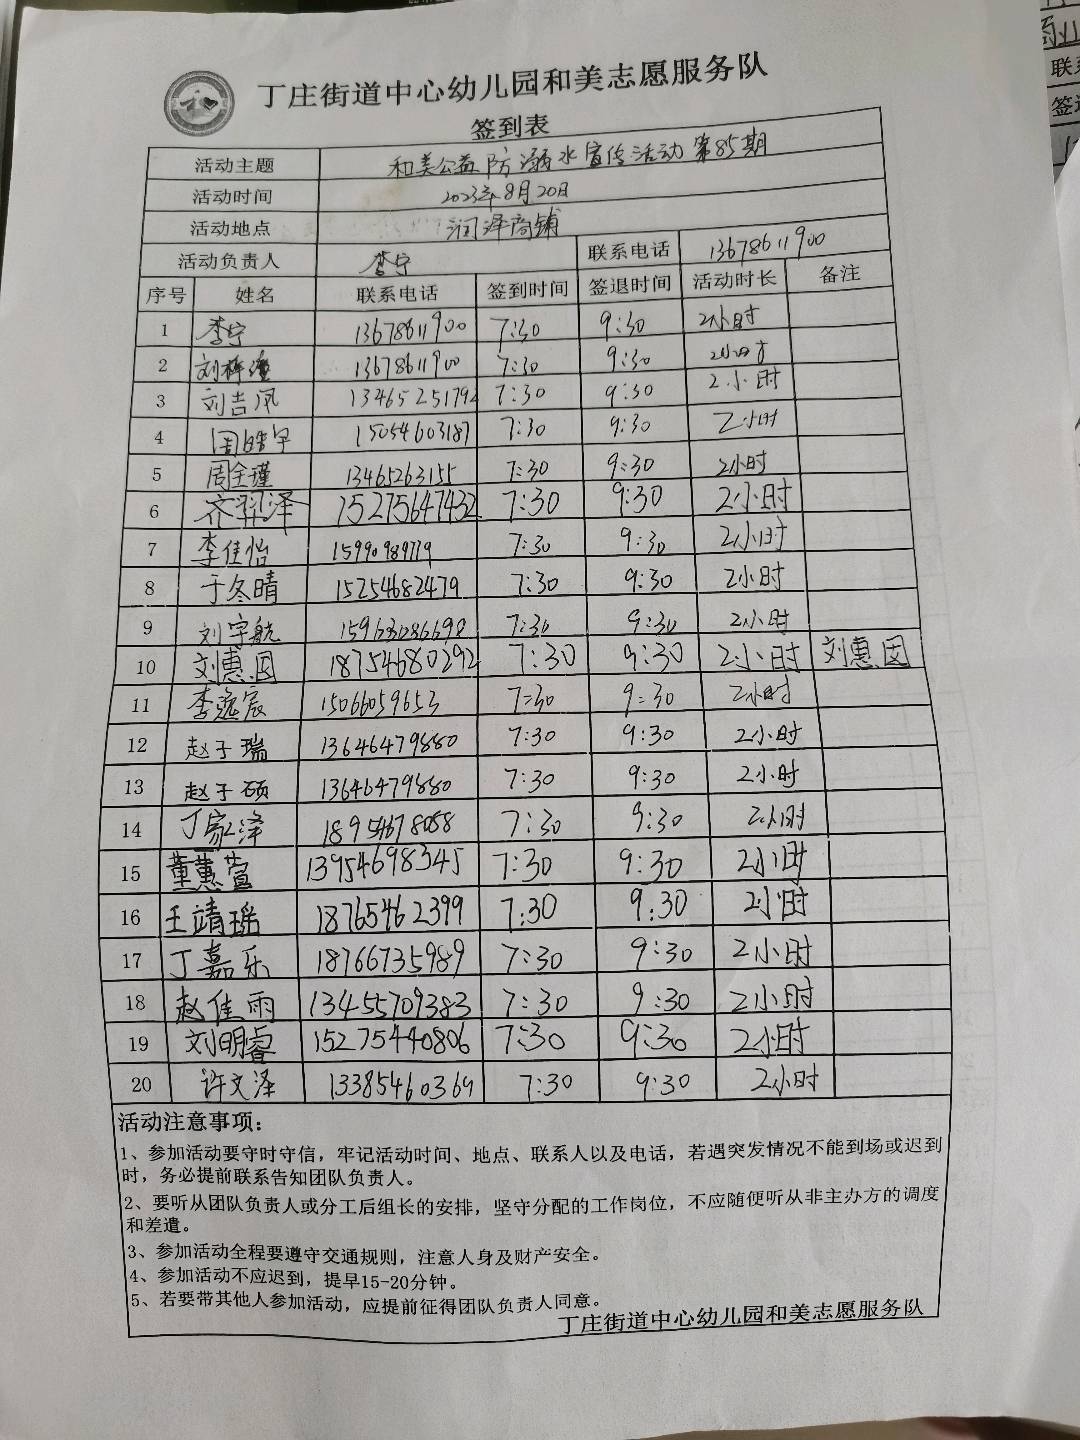 丁庄街道中心幼儿园和美志愿服务队
签到表
活动主题 和美公益防溺水宣传活动第85期
活动时间 2023年8月20日
活动地点 润泽商铺
活动负责人 李宁 联系电话 13678611900
序号 姓名 联系电话 签到时间 签退时间 活动时长 备注
1 李宁 13678611900 7:30 9:30 2小时
2 刘梓 13678611900 7:30 9:30 2小时
3 刘吉凤 13465251792 7:30 9:30 2小时
4 周皓宇 15054603187 7:30 9:30 2小时
5 周全瑾 13465263155 7:30 9:30 2小时
6 齐羿泽 15275647432 7:30 9:30 2小时
7 李佳怡 7:30 9:30 2小时
8 于冬晴 15254682479 7:30 9:30 2小时
9 刘宇航 7:30 9:30 2小时
10 刘惠因 18754680292 7:30 9:30 2小时 刘惠因
11 李逸宸 15066059653 7:30 9:30 2小时
12 赵子瑞 13646479880 7:30 9:30 2小时
13 赵子硕 13646479880 7:30 9:30 2小时
14 丁家泽 18954678058 7:30 9:30 2小时
15 董蕙萱 13954698345 7:30 9:30 2小时
16 王靖瑶 18765462399 7:30 9:30 2小时
17 丁嘉乐 18766735989 7:30 9:30 2小时
18 赵佳雨 13455709383 7:30 9:30 2小时
19 刘明睿 15275440806 7:30 9:30 2小时
20 许文泽 13385460369 7:30 9:30 2小时
活动注意事项：
1、参加活动要守时守信，牢记活动时间、地点、联系人以及电话，若遇突发情况不能到场或迟到
时，务必提前联系告知团队负责人。
2、要听从团队负责人或分工后组长的安排，坚守分配的工作岗位，不应随便听从非主办方的调度
和差遣。
3、参加活动全程要遵守交通规则，注意人身及财产安全。
4、参加活动不应迟到，提早15-20分钟。
5、若要带其他人参加活动，应提前征得团队负责人同意。
丁庄街道中心幼儿园和美志愿服务队